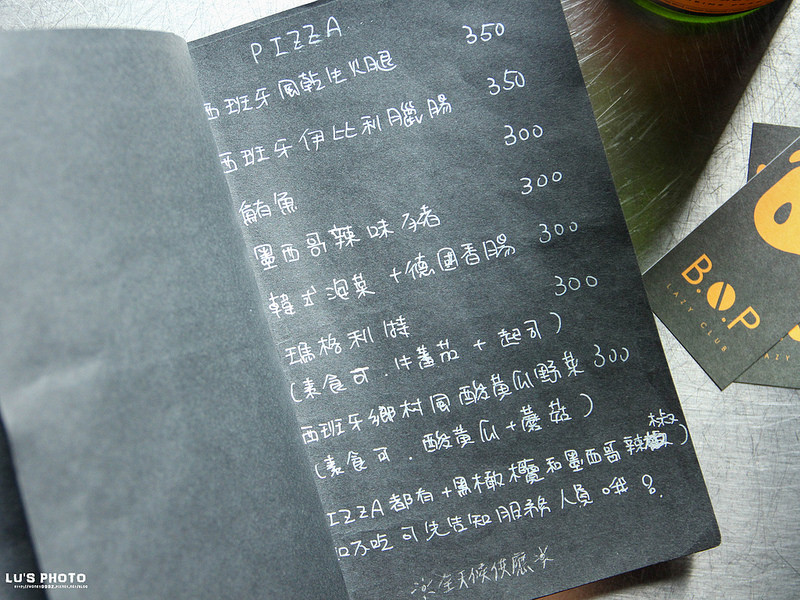 PIZZA
西班牙風乾生火腿 350
西班牙伊比利臘腸 350
鮪魚 300
墨西哥辣味孜者 300
韓式泡菜+德國香腸 300
瑪格利特 300
(素食可.什蕃茄+起司)
西班牙鄉村風酸黃瓜野菜 300
(素食可.酸黃瓜+蘑菇)
IZZA都有+黑橄欖和墨西哥辣椒)
如不吃可先告知服務人員哦!
※全天候供應※
B.O.P
LAZY CLUB
LU'S PHOTO